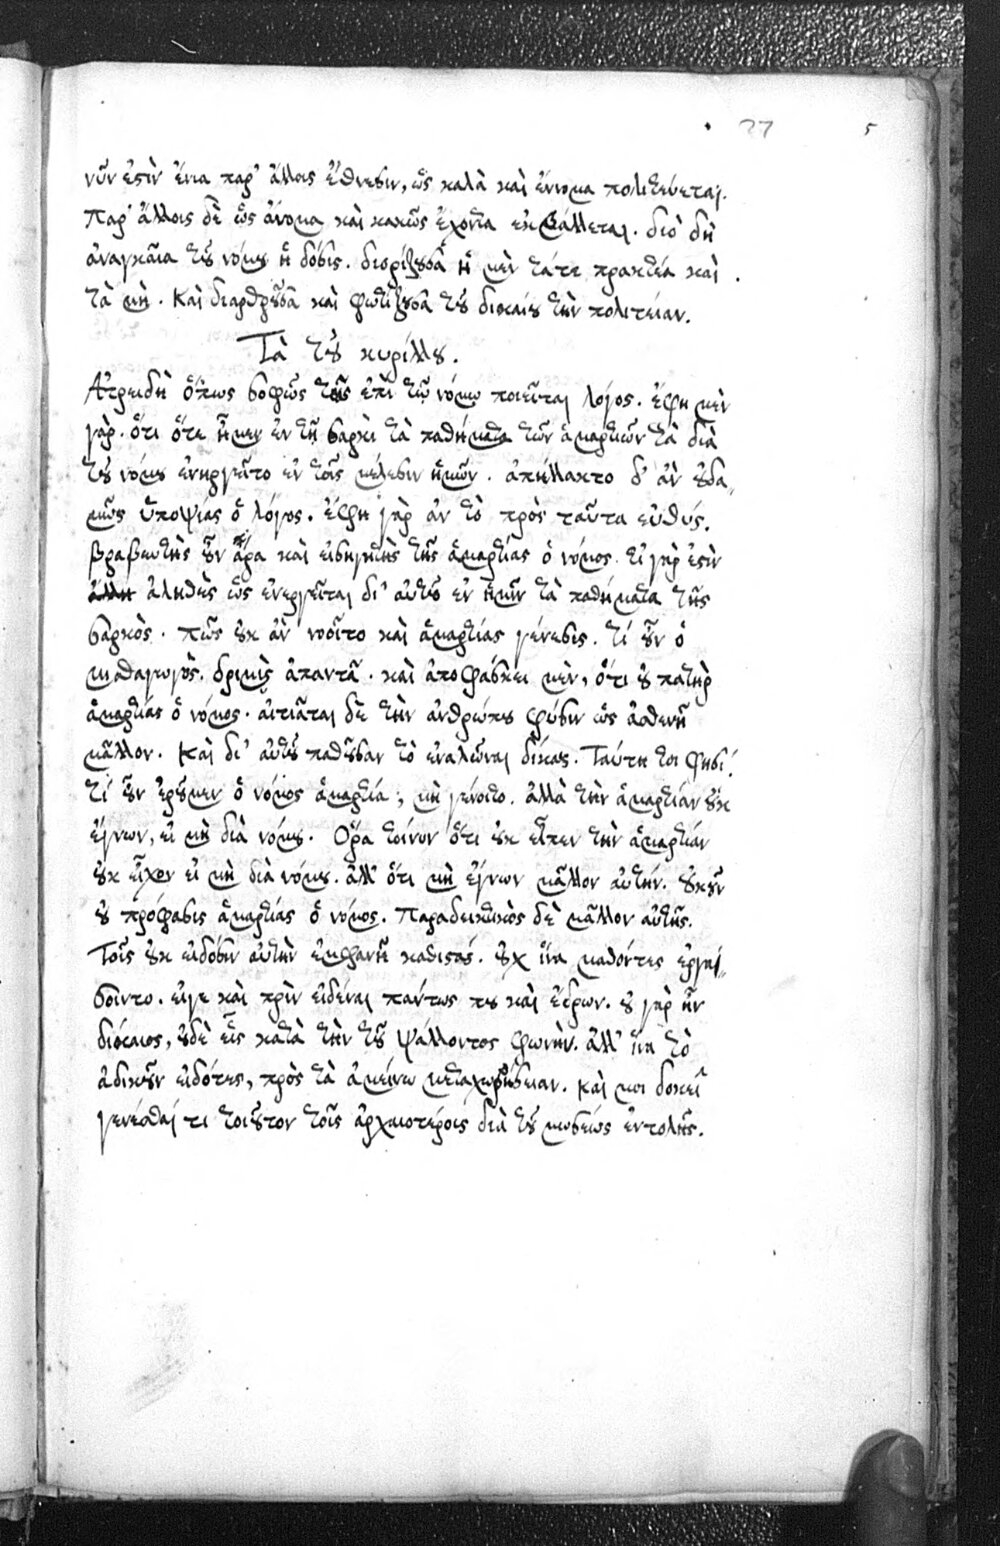 27 5
νῦν ἐστὶν ἔνια παρ' ἄλλοις ἔθνεσιν, ὡς καλὰ καὶ ἔννομα πολιτεύεται.
παρ' ἄλλοις δὲ ὡς ἄνομα καὶ κακῶς ἔχοντα ἐκβάλλεται. διὸ δὴ
ἀναγκαῖα τοῦ νόμου ἡ δόσις. διορίζουσα ἡ μὲν τά τε πρακτέα καὶ
τὰ μή. Καὶ διαρθροῦσα καὶ φωτίζουσα τοῦ δικαίου τὴν πολιτείαν.
Τὰ τοῦ κυρίλλου.
Ἄθρει δὴ ὅπως σοφῶς τοὺς ἐπὶ τῷ νόμῳ ποιεῖται λόγος. ἔφη μὲν
γὰρ. ὅτι ὅτε ἦμεν ἐν τῇ σαρκὶ τὰ παθήματα τῶν ἁμαρτιῶν τὰ διὰ
τοῦ νόμου ἐνηργεῖτο ἐν τοῖς μέλεσιν ἡμῶν. ἀπήλλακτο δ' ἂν οὐδα
μῶς ὑποψίας ὁ λόγος. ἔφη γὰρ ἄν τὸ πρὸς ταῦτα εὐθύς.
βραβευτὴς οὖν ἄρα καὶ εἰσηγητὴς τῆς ἁμαρτίας ὁ νόμος. Εἰ γὰρ ἐστὶν
ἀληθὲς ὡς ἐνεργεῖται δι' αὐτοῦ ἐν ἡμῖν τὰ παθήματα τῆς
σαρκὸς. πῶς οὐκ ἂν νοοῖτο καὶ ἁμαρτίας γένεσις. τί οὖν ὁ
μυσταγωγὸς. δριμὺς ἀπαντᾶ. καὶ ἀποφάσκει μὲν, ὅτι οὐ πατὴρ
ἁμαρτίας ὁ νόμος. αἰτιᾶται δὲ τὴν ἀνθρώπου φύσιν ὡς ἀσθενῆ
μᾶλλον. Καὶ δι' αὐτοῦ παθοῦσαν τὸ ἐναλῶναι δίκαις. Ταύτῃ τοι φησί.
τί οὖν ἐροῦμεν ὁ νόμος ἁμαρτία; μὴ γένοιτο. ἀλλὰ τὴν ἁμαρτίαν οὐκ
ἔγνων, εἰ μὴ διὰ νόμου. Ὅρα τοίνυν ὅτι οὐκ εἶπεν τὴν ἁμαρτίαν
οὐκ εἶχον εἰ μὴ διὰ νόμου. ἀλλ' ὅτι μὴ ἔγνων μᾶλλον αὐτήν. οὐκοῦν
οὐ πρόφασις ἁμαρτίας ὁ νόμος. παραδεικτικὸς δὲ μᾶλλον αὐτῆς.
Τοῖς οὐκ εἰδόσιν αὐτὴν ἐμφανῆ καθιστάς. οὐχ ἵνα μαθόντες ἐργά
σοιντο. εἴγε καὶ πρὶν εἰδέναι πάντως που καὶ ἔδρων. οὐ γὰρ ἦν
δίκαιος, οὐδὲ εἷς κατὰ τὴν τοῦ ψάλλοντος φωνήν. ἀλλ' ἵνα τὸ
ἀδικοῦν εἰδότες, πρὸς τὰ ἀμείνω μεταχωρήσειαν. καὶ μοι δοκεῖ
γενέσθαι τι τοιοῦτον τοῖς ἀρχαιοτέροις διὰ τῆς μωσέως ἐντολῆς.